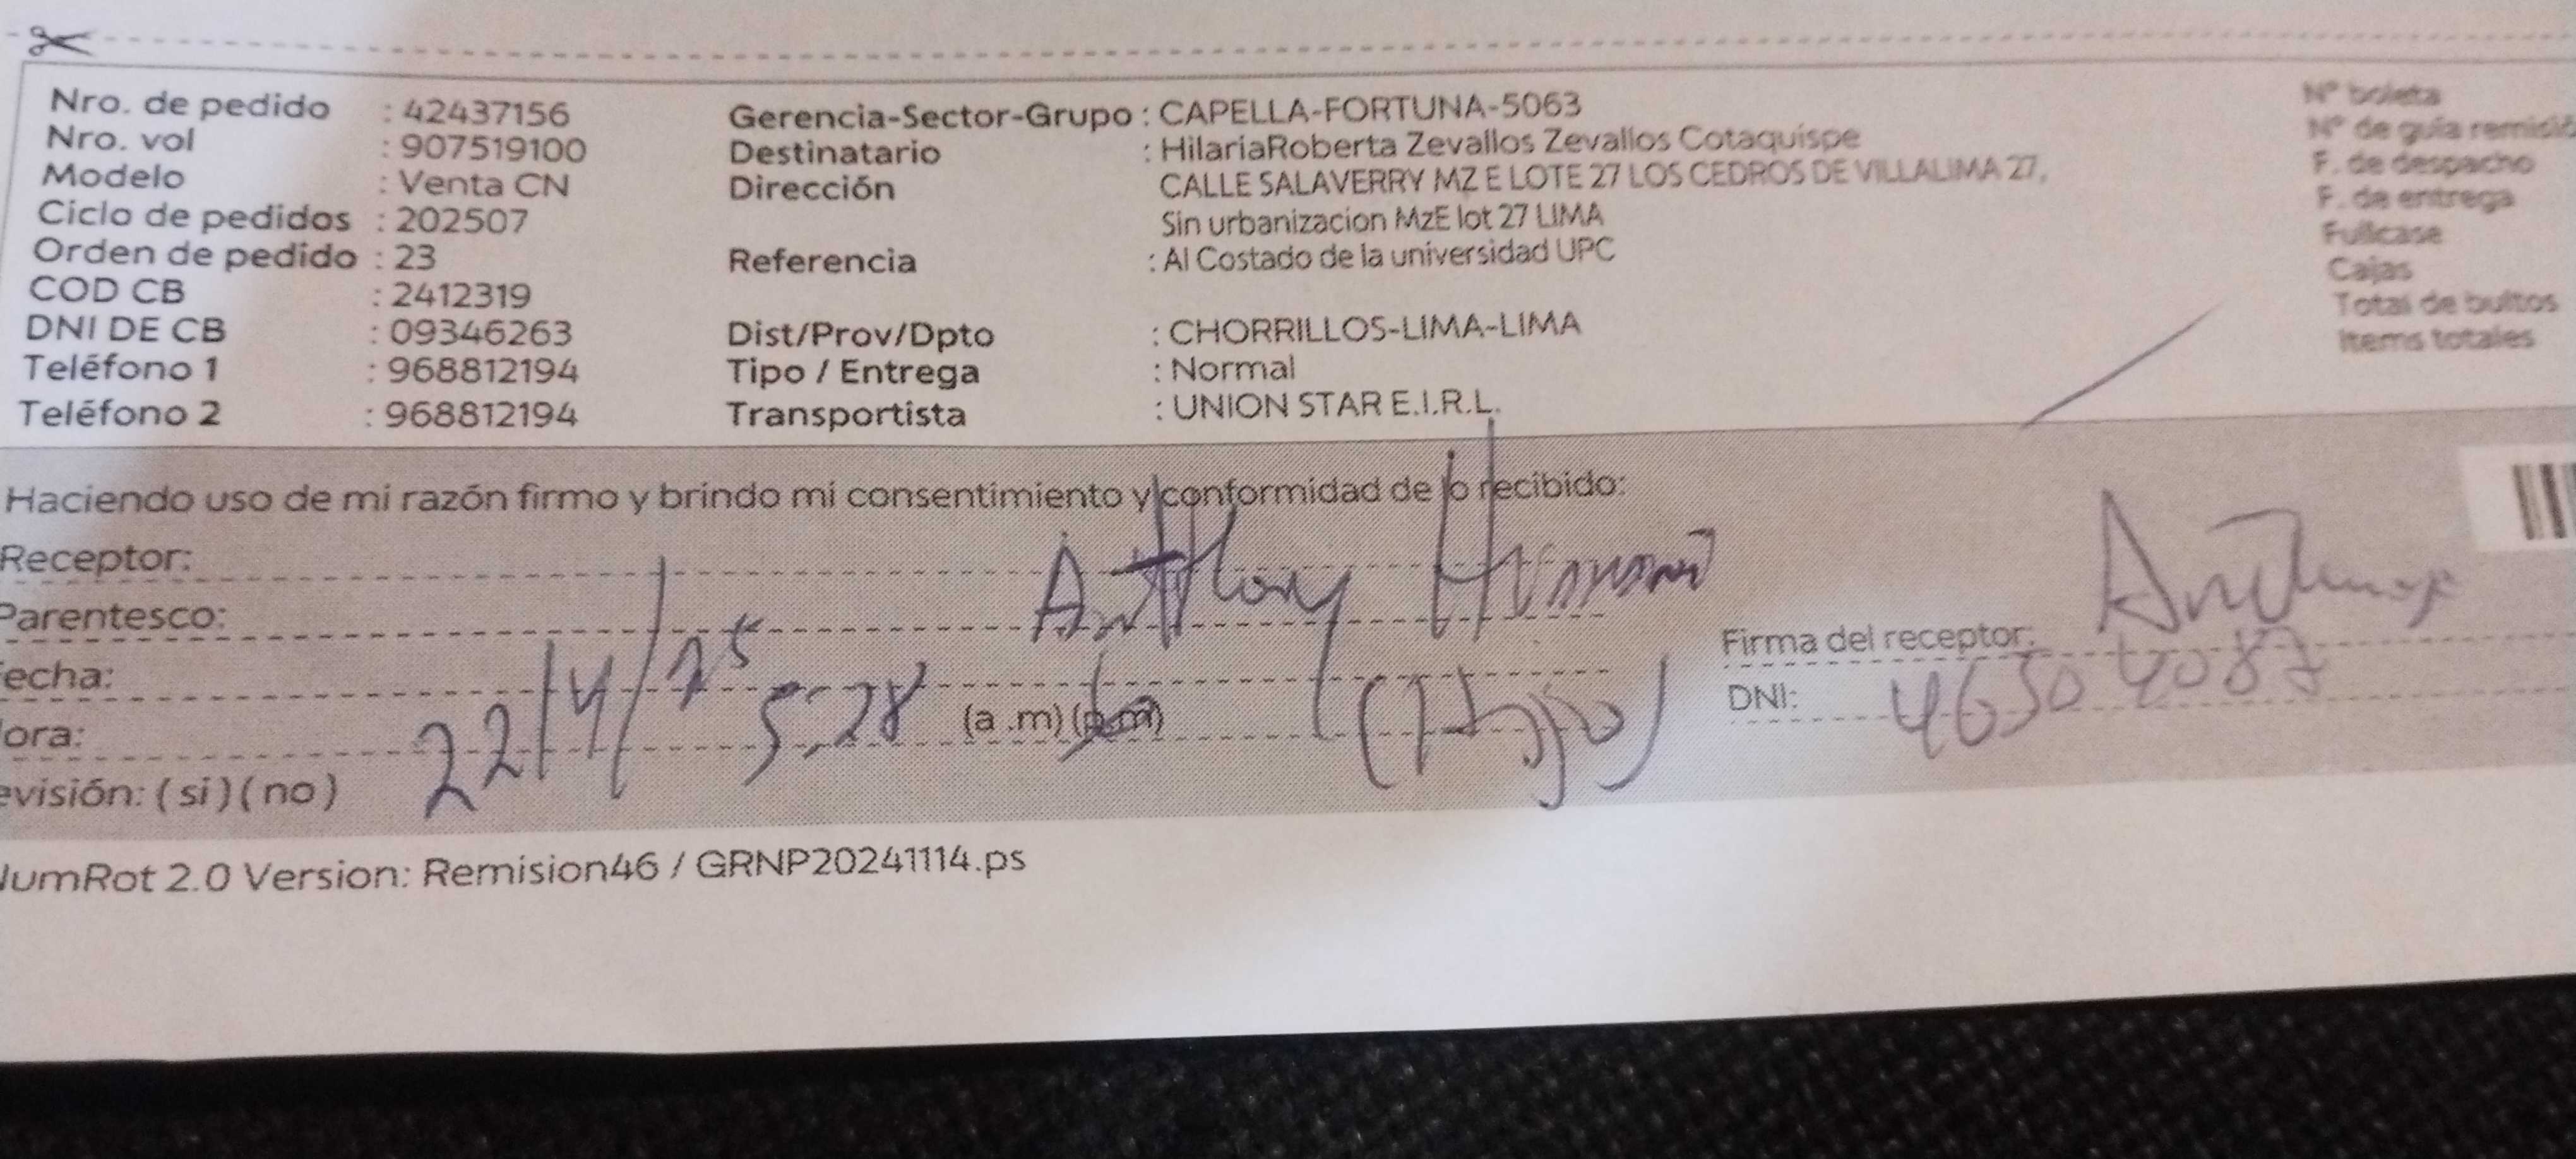 Nro. de pedido : 42437156
Nro. vol : 907519100
Modelo : Venta CN
Ciclo de pedidos : 202507
Orden de pedido : 23
COD CB : 2412319
DNI DE CB : 09346263
Teléfono 1 : 968812194
Teléfono 2 : 968812194
Gerencia-Sector-Grupo : CAPELLA-FORTUNA-5063
Destinatario : HilariaRoberta Zevallos Zevallos Cotaquispe
Dirección CALLE SALAVERRY MZ E LOTE 27 LOS CEDROS DE VILLALIMA 27,
Sin urbanizacion MzE lot 27 LIMA
Referencia : Al Costado de la universidad UPC
Dist/Prov/Dpto : CHORRILLOS-LIMA-LIMA
Tipo / Entrega : Normal
Transportista : UNION STAR E.I.R.L.
Nº boleta
Nº de guía
F. de despacho
F. de entrega
Fullcase
Cajas
Total de bultos
Items totales
Haciendo uso de mi razón firmo y brindo mi consentimiento y conformidad de lo recibido:
Receptor: Anthony
Parentesco:
echa: 22/4/25
ora: 5:28 (a .m) (p.m) (Hijo)
evisión: ( si ) ( no )
Firma del receptor:
DNI:
umRot 2.0 Version: Remision46 / GRNP20241114.ps